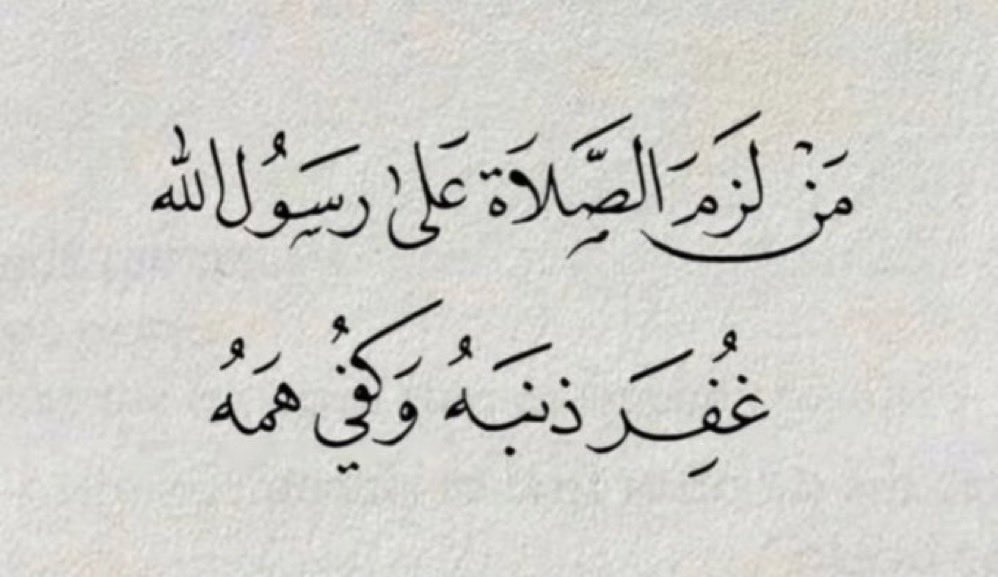 مَنْ لَزِمَ الصَّلَاةَ عَلَىٰ رَسُولِ الله
غُفِرَ ذَنبَهُ وَكُفِيَ هَمَهُ